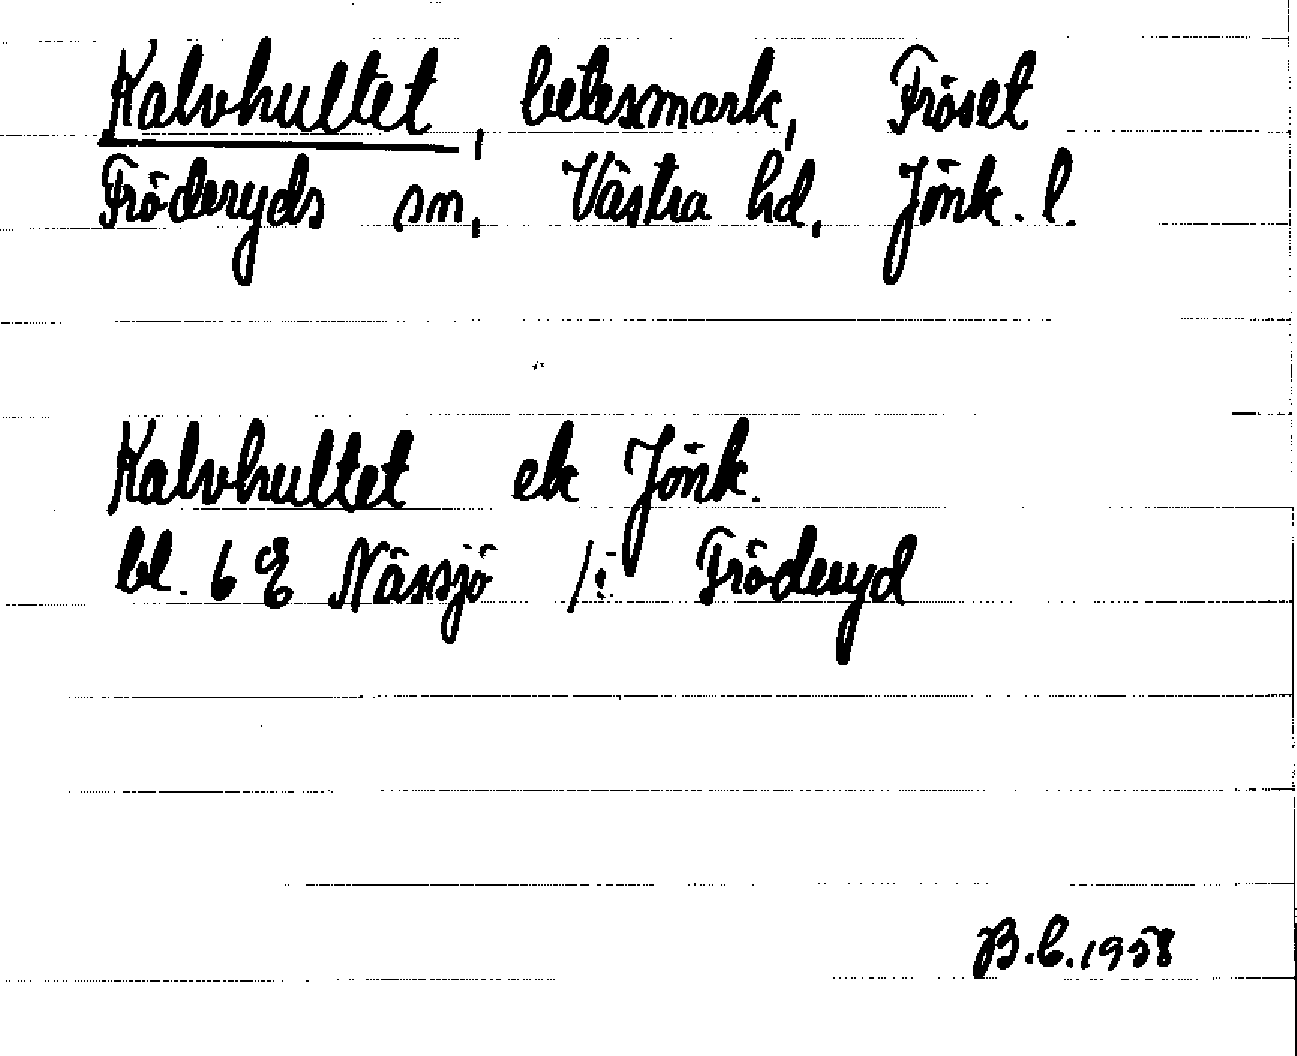 Kalvhultet, betesmark, Fröset
Fröderyds sn, Västra hd, Jönk. l.
Kalvhultet ek Jönk.
bl. 6 E Nässjö /: Fröderyd
B.C. 1958